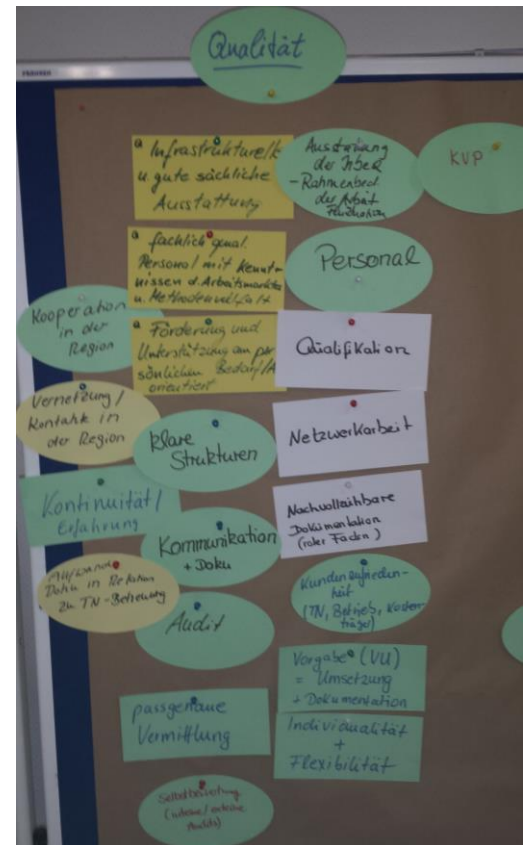 Qualität
Infrastrukturelle
u. gute sächliche
Ausstattung
Ausstattung
der
- Rahmenbed.
der Arbeit
KVP
fachlich qual.
Personal mit Kennt-
nissen d. Arbeitsmarktes
u. Methodenvielfalt
Personal
Kooperation
in der
Region
Förderung und
Unterstützung am per
sönlichen Bedarf
orientiert
Qualifikation
Vernetzung /
Kontakte in
der Region
klare
Strukturen
Netzwerkarbeit
Kontinuität /
Erfahrung
Kommunikation
+ Doku
Nachvollziehbare
Dokumentation
(roter Faden)
Doku in Relation
zu TN-Betreuung
Audit
Kundenzufrieden-
heit
(TN, Betrieb, Kosten
träger)
Vorgabe (VU)
= Umsetzung
+ Dokumentation
passgenaue
Vermittlung
Individualität
+
Flexibilität
Selbstbewertung
(interne / externe
Audits)